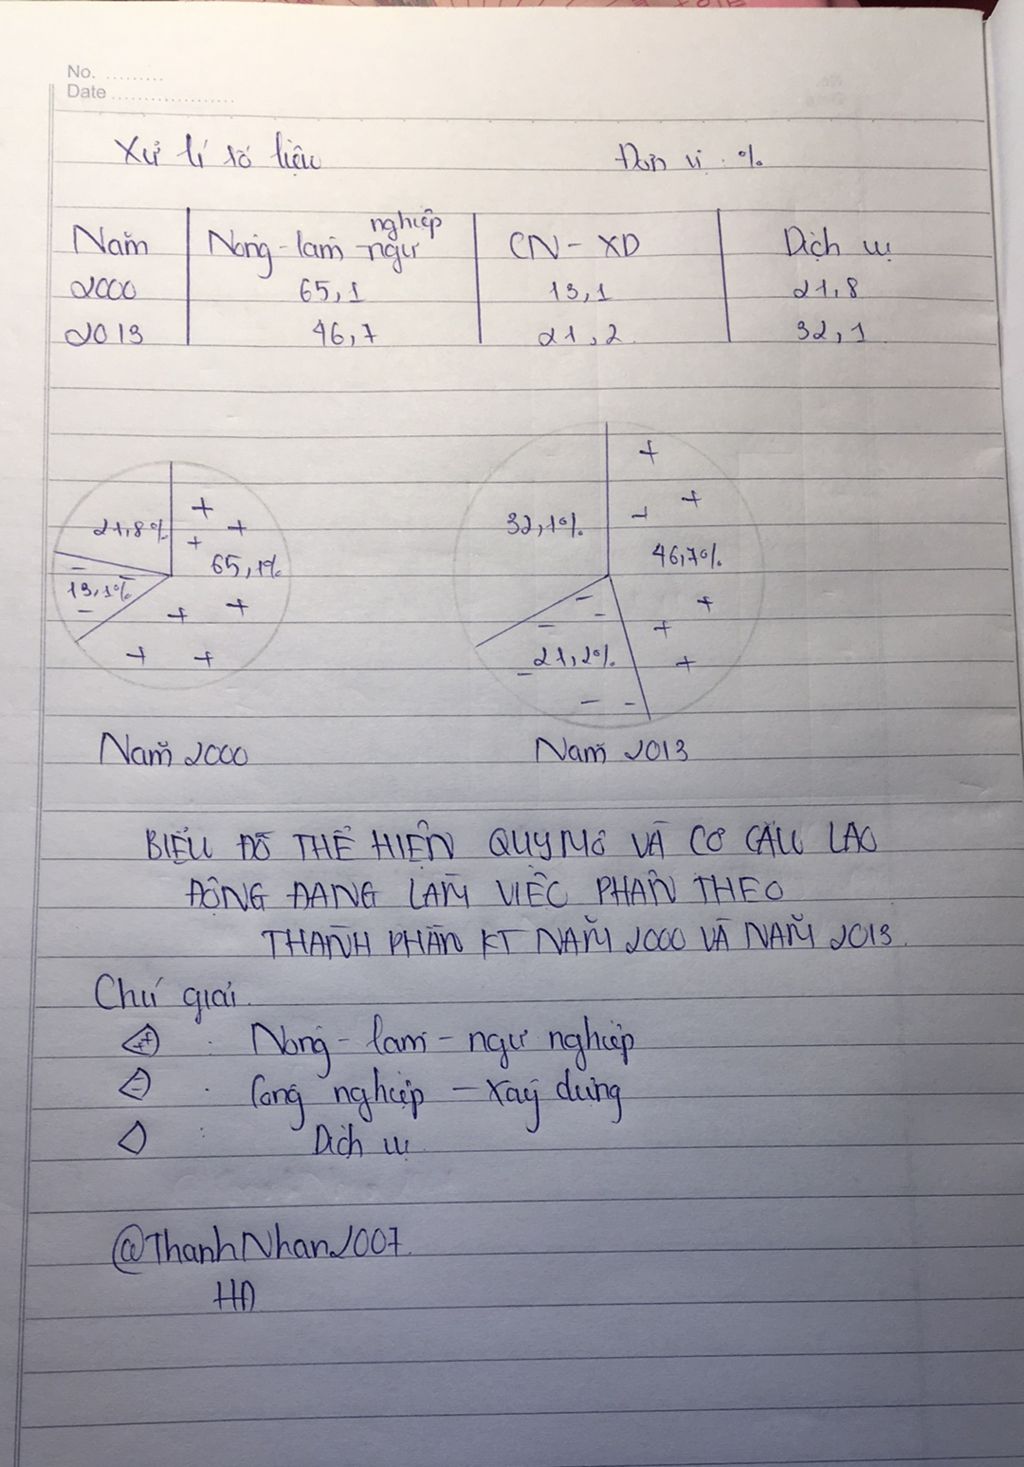 No. .........
Date ...................
Xử lí số liệu Đơn vị : %
Năm Nông-lâm-ngư nghiệp CN-XD Dịch vụ
2000 65,1 13,1 21,8
2013 46,7 21,2 32,1
21,8% 65,1% 13,1%
32,1% 46,7% 21,2%
Năm 2000 Năm 2013
BIỂU ĐỒ THỂ HIỆN QUY MÔ VÀ CƠ CẤU LAO
ĐỘNG ĐANG LÀM VIỆC PHÂN THEO
THÀNH PHẦN KT NĂM 2000 VÀ NĂM 2013.
Chú giải.
++ : Nông-lâm-ngư nghiệp
- : Công nghiệp - xây dựng
: Dịch vụ
@ThanhNhan2007
HD